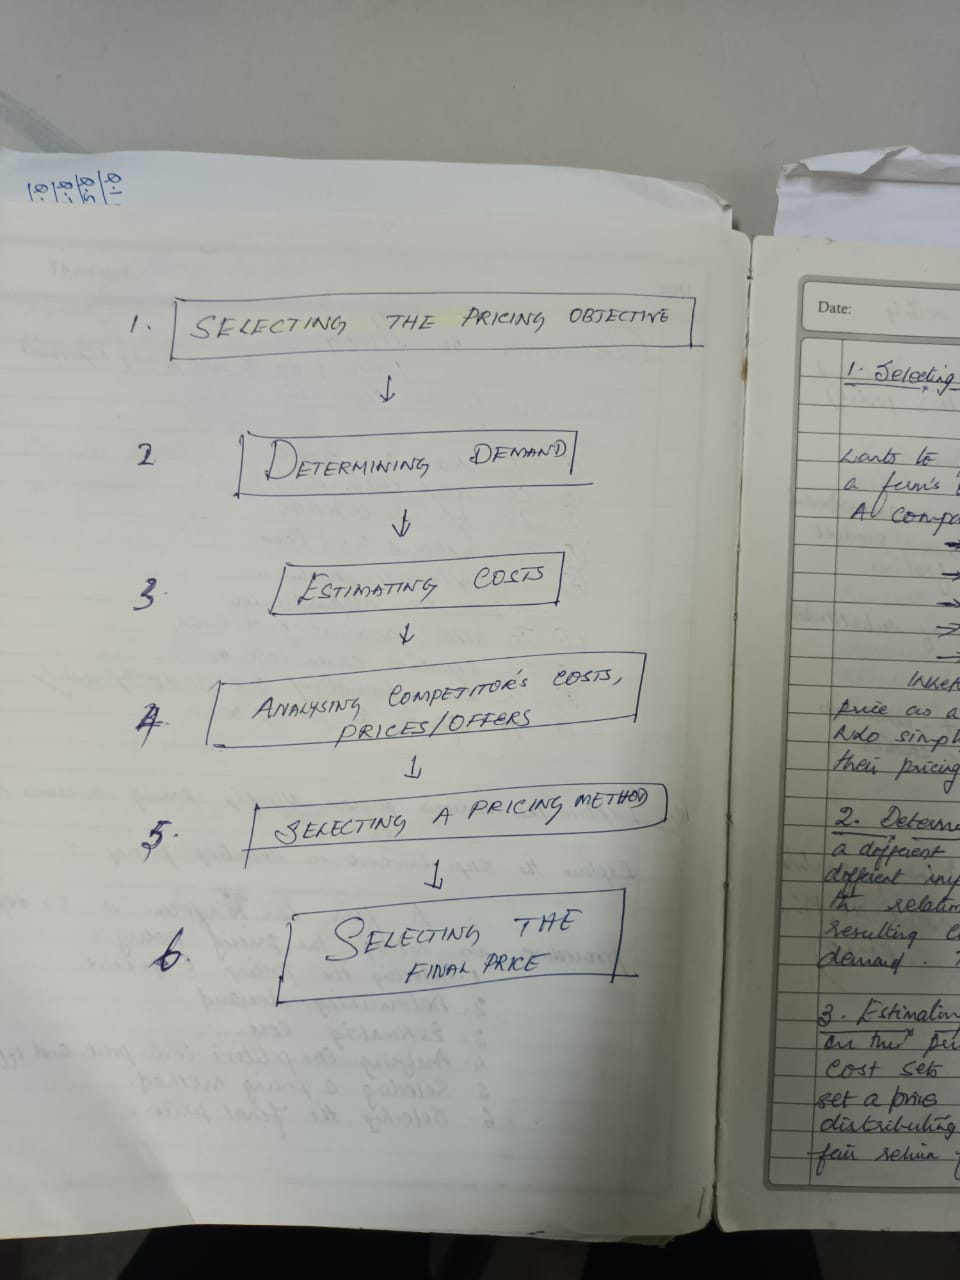 1. SELECTING THE PRICING OBJECTIVE
↓
2 DETERMINING DEMAND
↓
3. ESTIMATING COSTS
↓
4. ANALYSING COMPETITOR'S COSTS,
PRICES/OFFERS
↓
5. SELECTING A PRICING METHOD
↓
6. SELECTING THE
FINAL PRICE
Date:
1. Selecting
a firm's
A compa
→
→
→
→
→
price as a
simpl
their pricing
2. Determ
a different
different
the relation
resulting
demand.
3. Estimatin
on the
cost sets
set a price
distributing
fair return